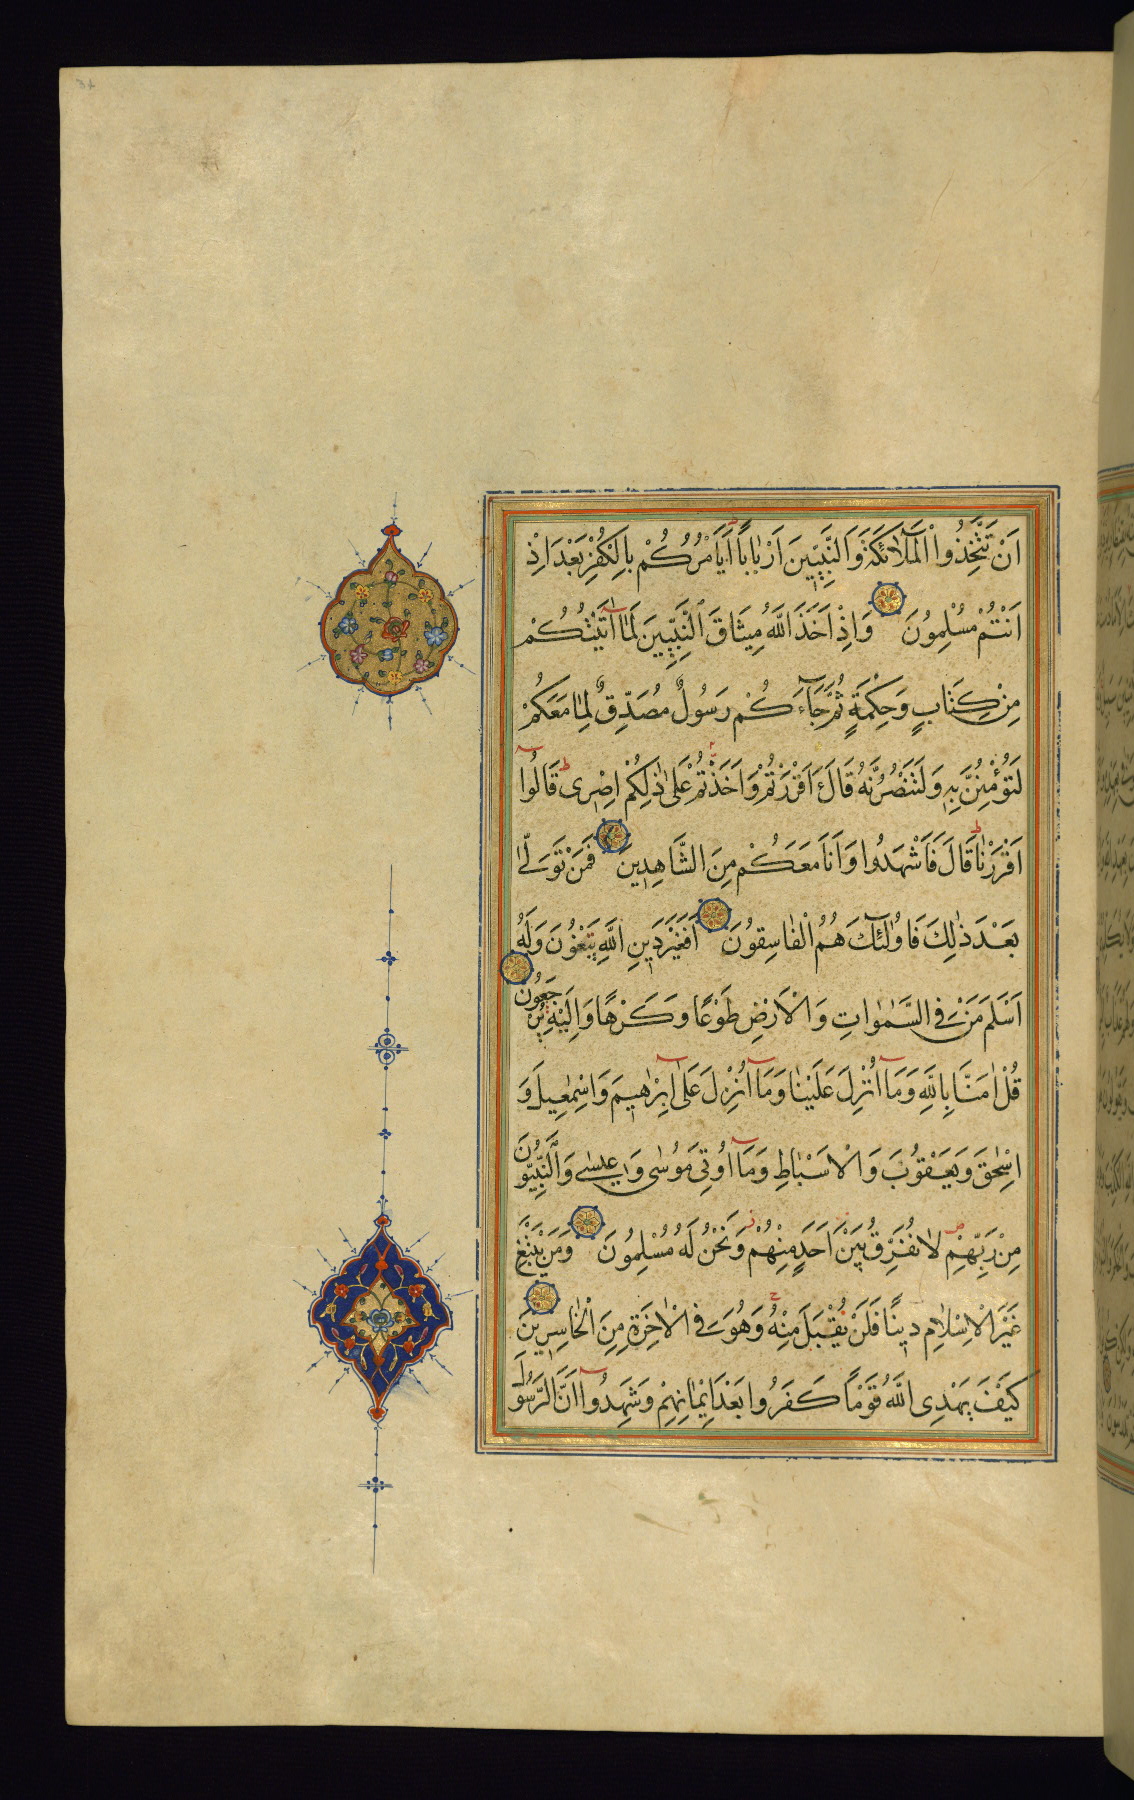 اَنْ تَتَّخِذُوا الْمَلٰٓائِكَةَ وَالنَّبِيّٖنَ اَرْبَاباً اَيَاْمُرُكُمْ بِالْكُفْرِ بَعْدَ اِذْ
اَنْتُمْ مُسْلِمُونَ وَاِذْ اَخَذَ اللّٰهُ مِيثَاقَ النَّبِيّٖنَ لَمَٓا اٰتَيْتُكُمْ
مِنْ كِتَابٍ وَحِكْمَةٍ ثُمَّ جَٓاءَكُمْ رَسُولٌ مُصَدِّقٌ لِمَا مَعَكُمْ
لَتُؤْمِنُنَّ بِهٖ وَلَتَنْصُرُنَّهُ قَالَ ءَاَقْرَرْتُمْ وَاَخَذْتُمْ عَلٰى ذٰلِكُمْ اِصْرِى قَالُٓوا
اَقْرَرْنَا قَالَ فَاشْهَدُوا وَاَنَا مَعَكُمْ مِنَ الشَّاهِدِينَ فَمَنْ تَوَلّٰى
بَعْدَ ذٰلِكَ فَاُولٰٓئِكَ هُمُ الْفَاسِقُونَ اَفَغَيْرَ دِينِ اللّٰهِ يَبْغُونَ وَلَهُٓ
اَسْلَمَ مَنْ فِى السَّمٰوَاتِ وَالْاَرْضِ طَوْعًا وَكَرْهًا وَاِلَيْهِ يُرْجَعُونَ
قُلْ اٰمَنَّا بِاللّٰهِ وَمَٓا اُنْزِلَ عَلَيْنَا وَمَٓا اُنْزِلَ عَلٰٓى اِبْرٰهِيمَ وَاِسْمٰعِيلَ وَ
اِسْحٰقَ وَيَعْقُوبَ وَالْاَسْبَاطِ وَمَٓا اُوتِىَ مُوسٰى وَعِيسٰى وَالنَّبِيُّونَ
مِنْ رَبِّهِمْ لَا نُفَرِّقُ بَيْنَ اَحَدٍ مِنْهُمْ وَنَحْنُ لَهُ مُسْلِمُونَ وَمَنْ يَبْتَغِ
غَيْرَ الْاِسْلَامِ دِينًا فَلَنْ يُقْبَلَ مِنْهُ وَهُوَ فِى الْاٰخِرَةِ مِنَ الْخَاسِرِينَ
كَيْفَ يَهْدِى اللّٰهُ قَوْمًا كَفَرُوا بَعْدَ اِيمَانِهِمْ وَشَهِدُٓوا اَنَّ الرَّسُولَ